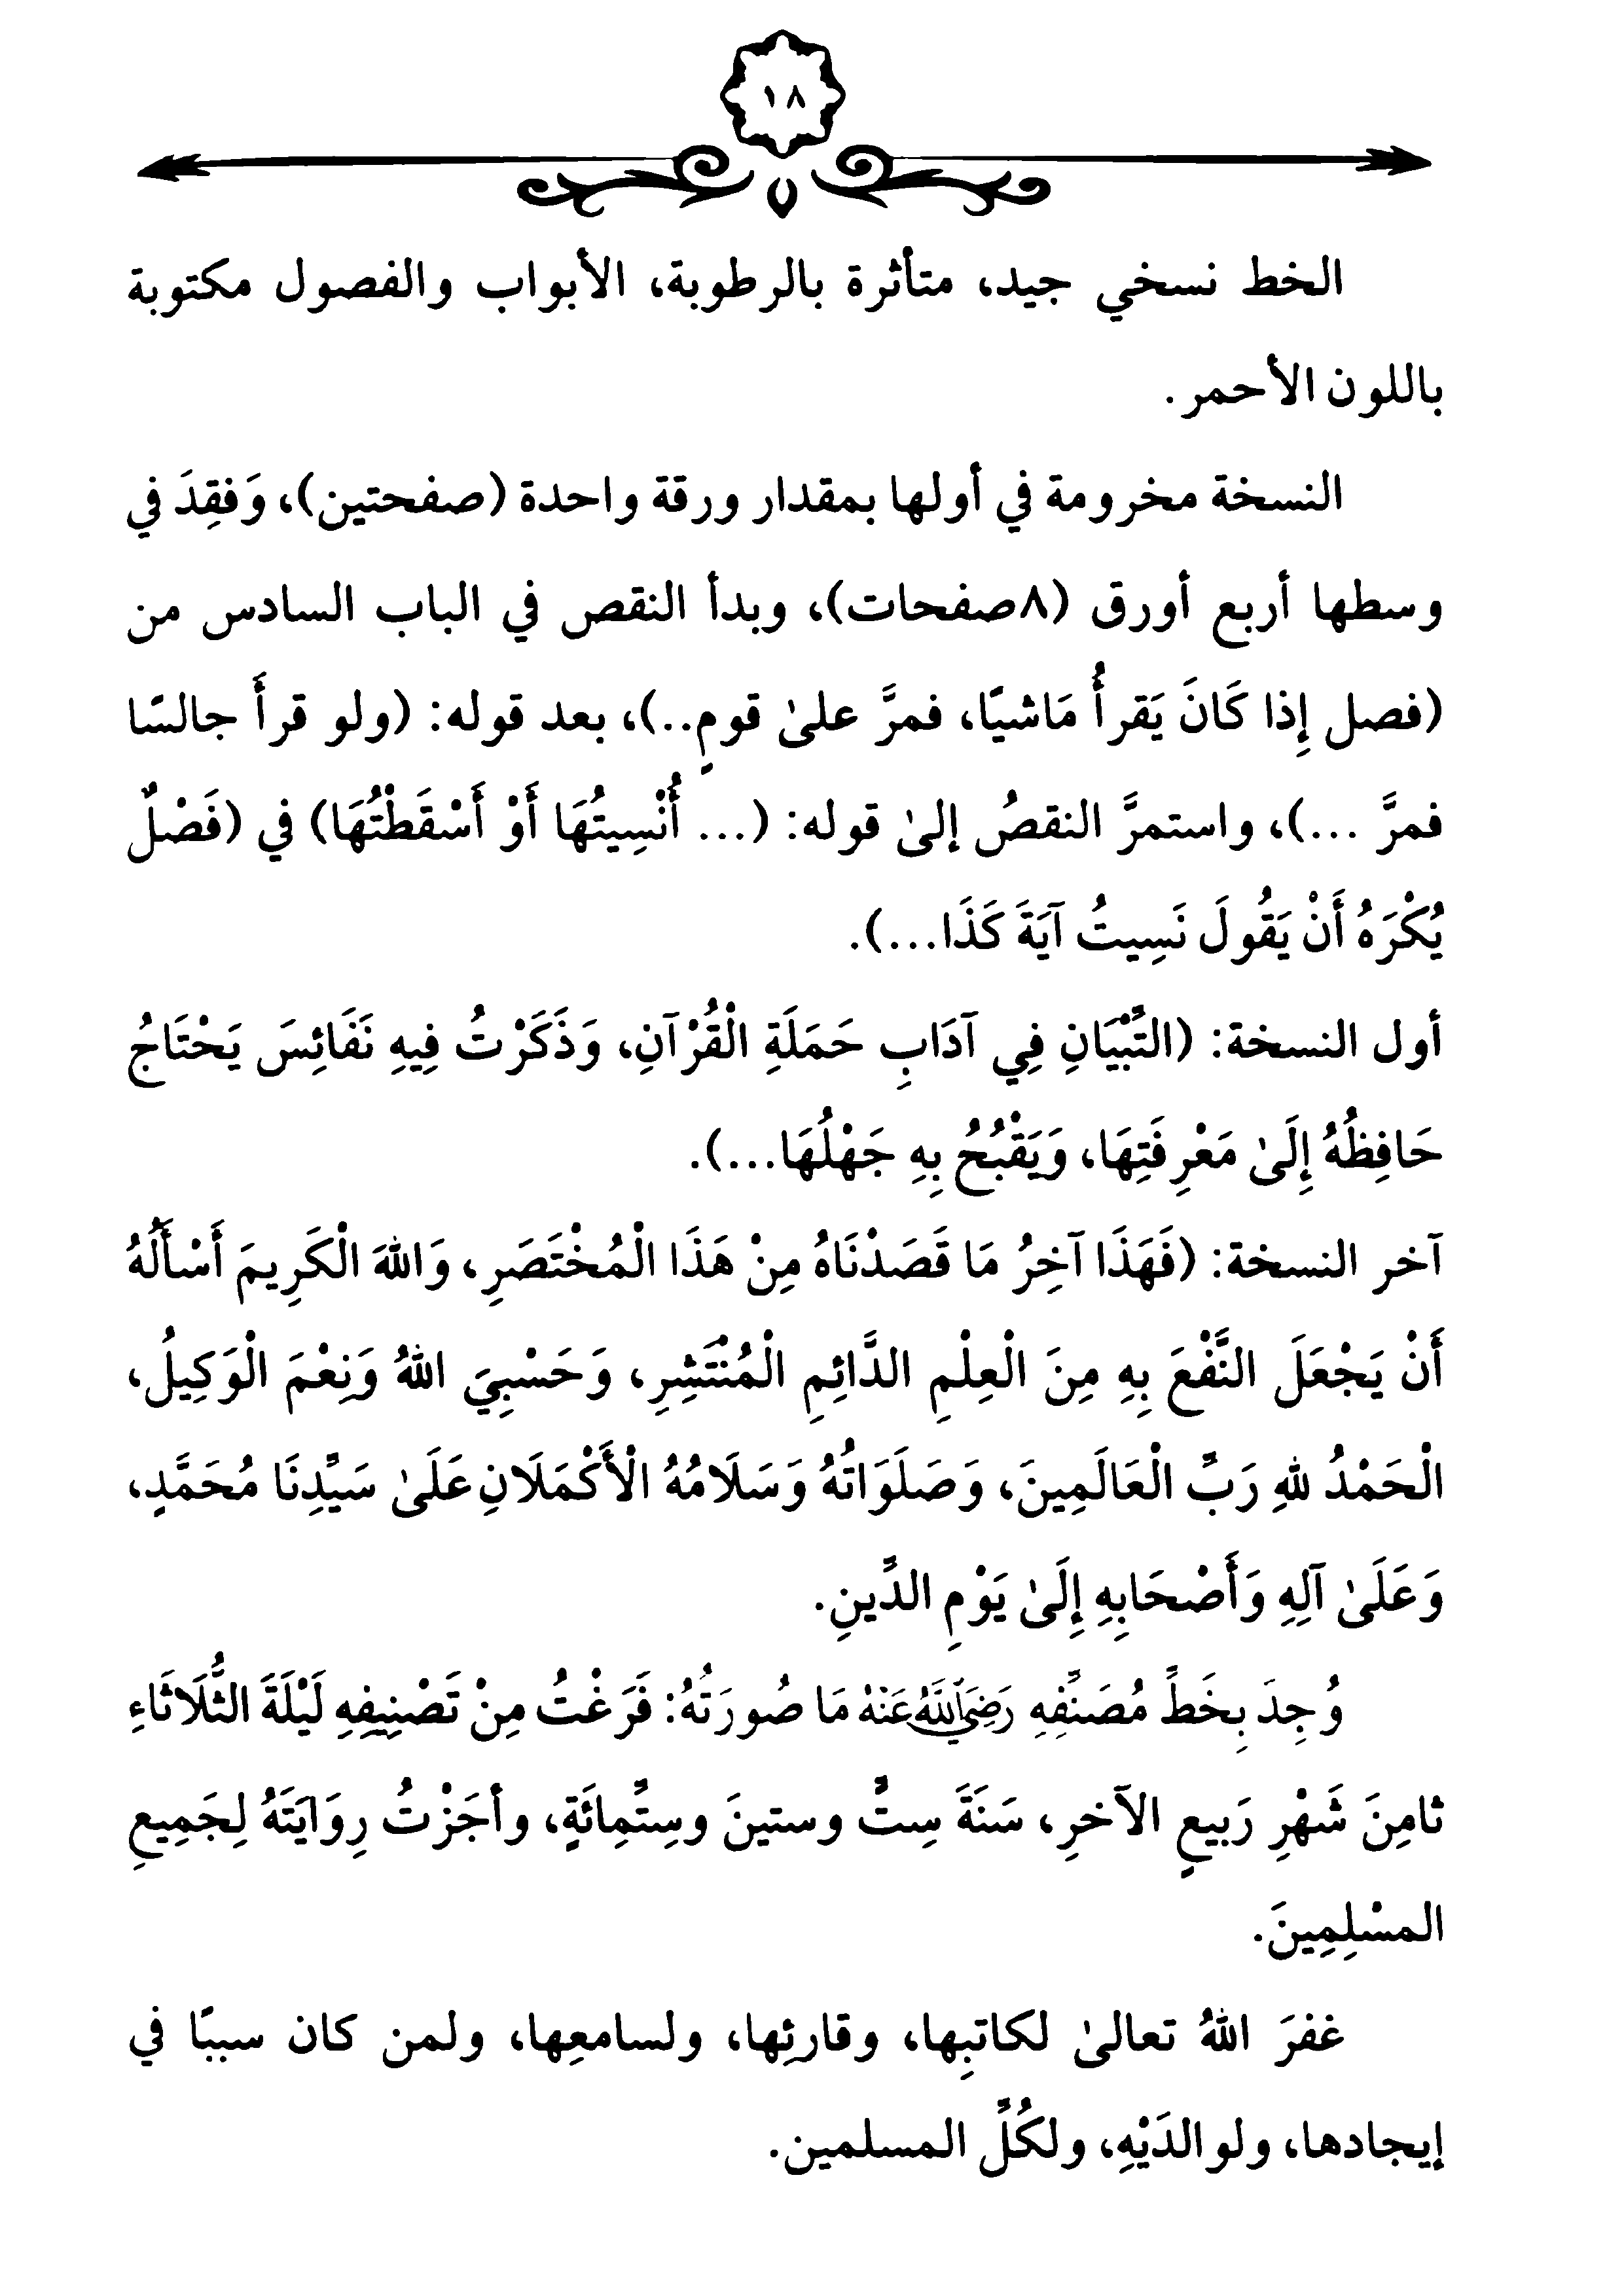 ١٨
الخط نسخي جيد، متأثرة بالرطوبة، الأبواب والفصول مكتوبة
باللون الأحمر.
النسخة مخرومة في أولها بمقدار ورقة واحدة (صفحتين)، وَفقِدَ في
وسطها أربع أورق (٨صفحات)، وبدأ النقص في الباب السادس من
(فصل إِذا كَانَ يَقرأُ مَاشيًا، فمرَّ علىٰ قومٍ..)، بعد قوله: (ولو قرأَ جالسًا
فمرَّ ...)، واستمرَّ النقصُ إلىٰ قوله: (... أُنْسِيتُهَا أَوْ أَسْقَطْتُهَا) في (فَصْلٌ
يُكْرَهُ أَنْ يَقُولَ نَسِيتُ آيَةَ كَذَا...).
أول النسخة: (التِّبْيَانِ فِي آدَابِ حَمَلَةِ الْقُرْآنِ، وَذَكَرْتُ فِيهِ نَفَائِسَ يَحْتَاجُ
حَافِظُهُ إِلَىٰ مَعْرِفَتِهَا، وَيَقْبُحُ بِهِ جَهْلُهَا...).
آخر النسخة: (فَهَذَا آخِرُ مَا قَصَدْنَاهُ مِنْ هَذَا الْمُخْتَصَرِ، وَاللهَ الْكَرِيمَ أَسْأَلُهُ
أَنْ يَجْعَلَ النَّفْعَ بِهِ مِنَ الْعِلْمِ الدَّائِمِ الْمُنْتَشِرِ، وَحَسْبِيَ اللهُ وَنِعْمَ الْوَكِيلُ،
الْحَمْدُ للهِ رَبِّ الْعَالَمِينَ، وَصَلَوَاتُهُ وَسَلَامُهُ الْأَكْمَلَانِ عَلَىٰ سَيِّدِنَا مُحَمَّدٍ،
وَعَلَىٰ آلِهِ وَأَصْحَابِهِ إِلَىٰ يَوْمِ الدِّينِ.
وُجِدَ بِخَطِّ مُصَنِّفِهِ رَضِيَ اللَّهُ عَنْهُ مَا صُورَتُهُ: فَرَغْتُ مِنْ تَصْنِيفِهِ لَيْلَةَ الثُّلَاثَاءِ
ثامِنَ شَهْرِ رَبيعٍ الآخرِ، سَنَةَ سِتٍّ وستينَ وسِتِّمِائَةٍ، وأجَزْتُ رِوَايَتَهُ لِجَمِيعِ
المسْلِمِينَ.
غفرَ اللهُ تعالىٰ لكاتبِها، وقارئِها، ولسامعِها، ولمن كان سببًا في
إيجادها، ولوالدَيْهِ، ولكُلِّ المسلمين.